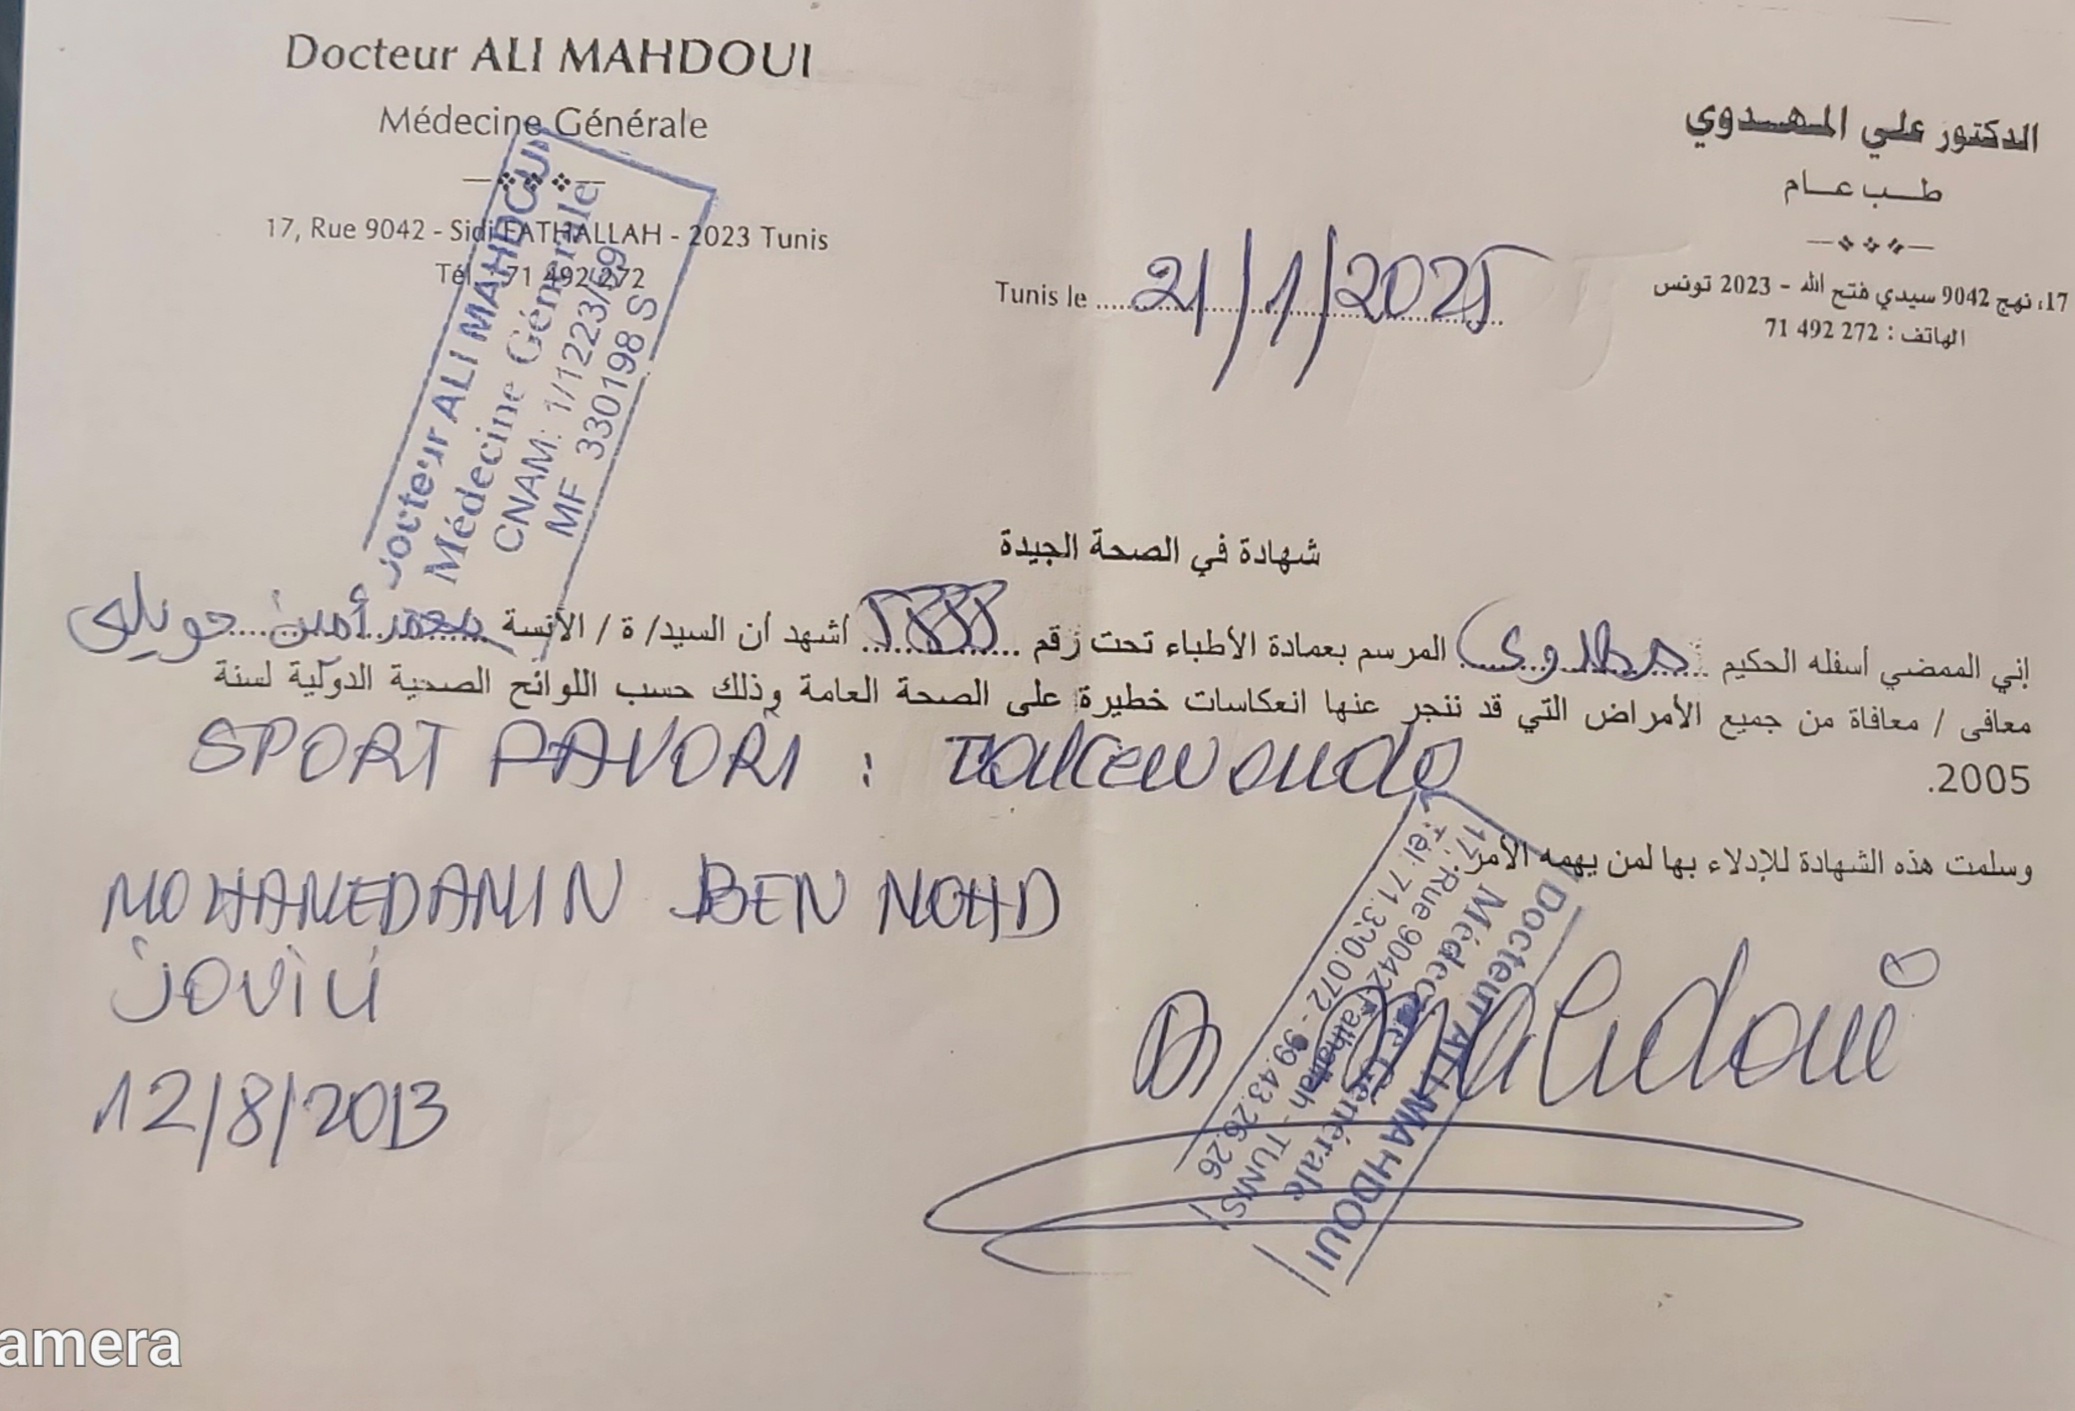 Docteur ALI MAHDOUI
Médecine Générale
17, Rue 9042 - Sidi FATHALLAH - 2023 Tunis
Tél. : 71 492 272
الدكتور علي المهدوي
طب عام
17، نهج 9042 سيدي فتح الله - 2023 تونس
الهاتف : 272 492 71
Tunis le 21/1/2025
Docteur ALI MAHDOUI
Médecine Générale
CNAM: 1/11223/69
MF 330198 S
شهادة في الصحة الجيدة
إني الممضي أسفله الحكيم المرسم بعمادة الأطباء تحت رقم أشهد أن السيد/ ة / الآنسة محمد أمين جويلي
معافى / معافاة من جميع الأمراض التي قد ننجر عنها انعكاسات خطيرة على الصحة العامة وذلك حسب اللوائح الصحية الدولية لسنة
2005.
SPORT FAVORI : Taekewondo
وسلمت هذه الشهادة للإدلاء بها لمن يهمه الأمر.
MOHAMEDAMIN BEN MOHD
JOVILI
12/8/2013
Dr Mahdoui
Docteur ALI MAHDOUI
Médecine Générale
17, Rue 9042 Fathallah - TUNIS
Tél. 71.390.072 - 99.43.26.26
amera